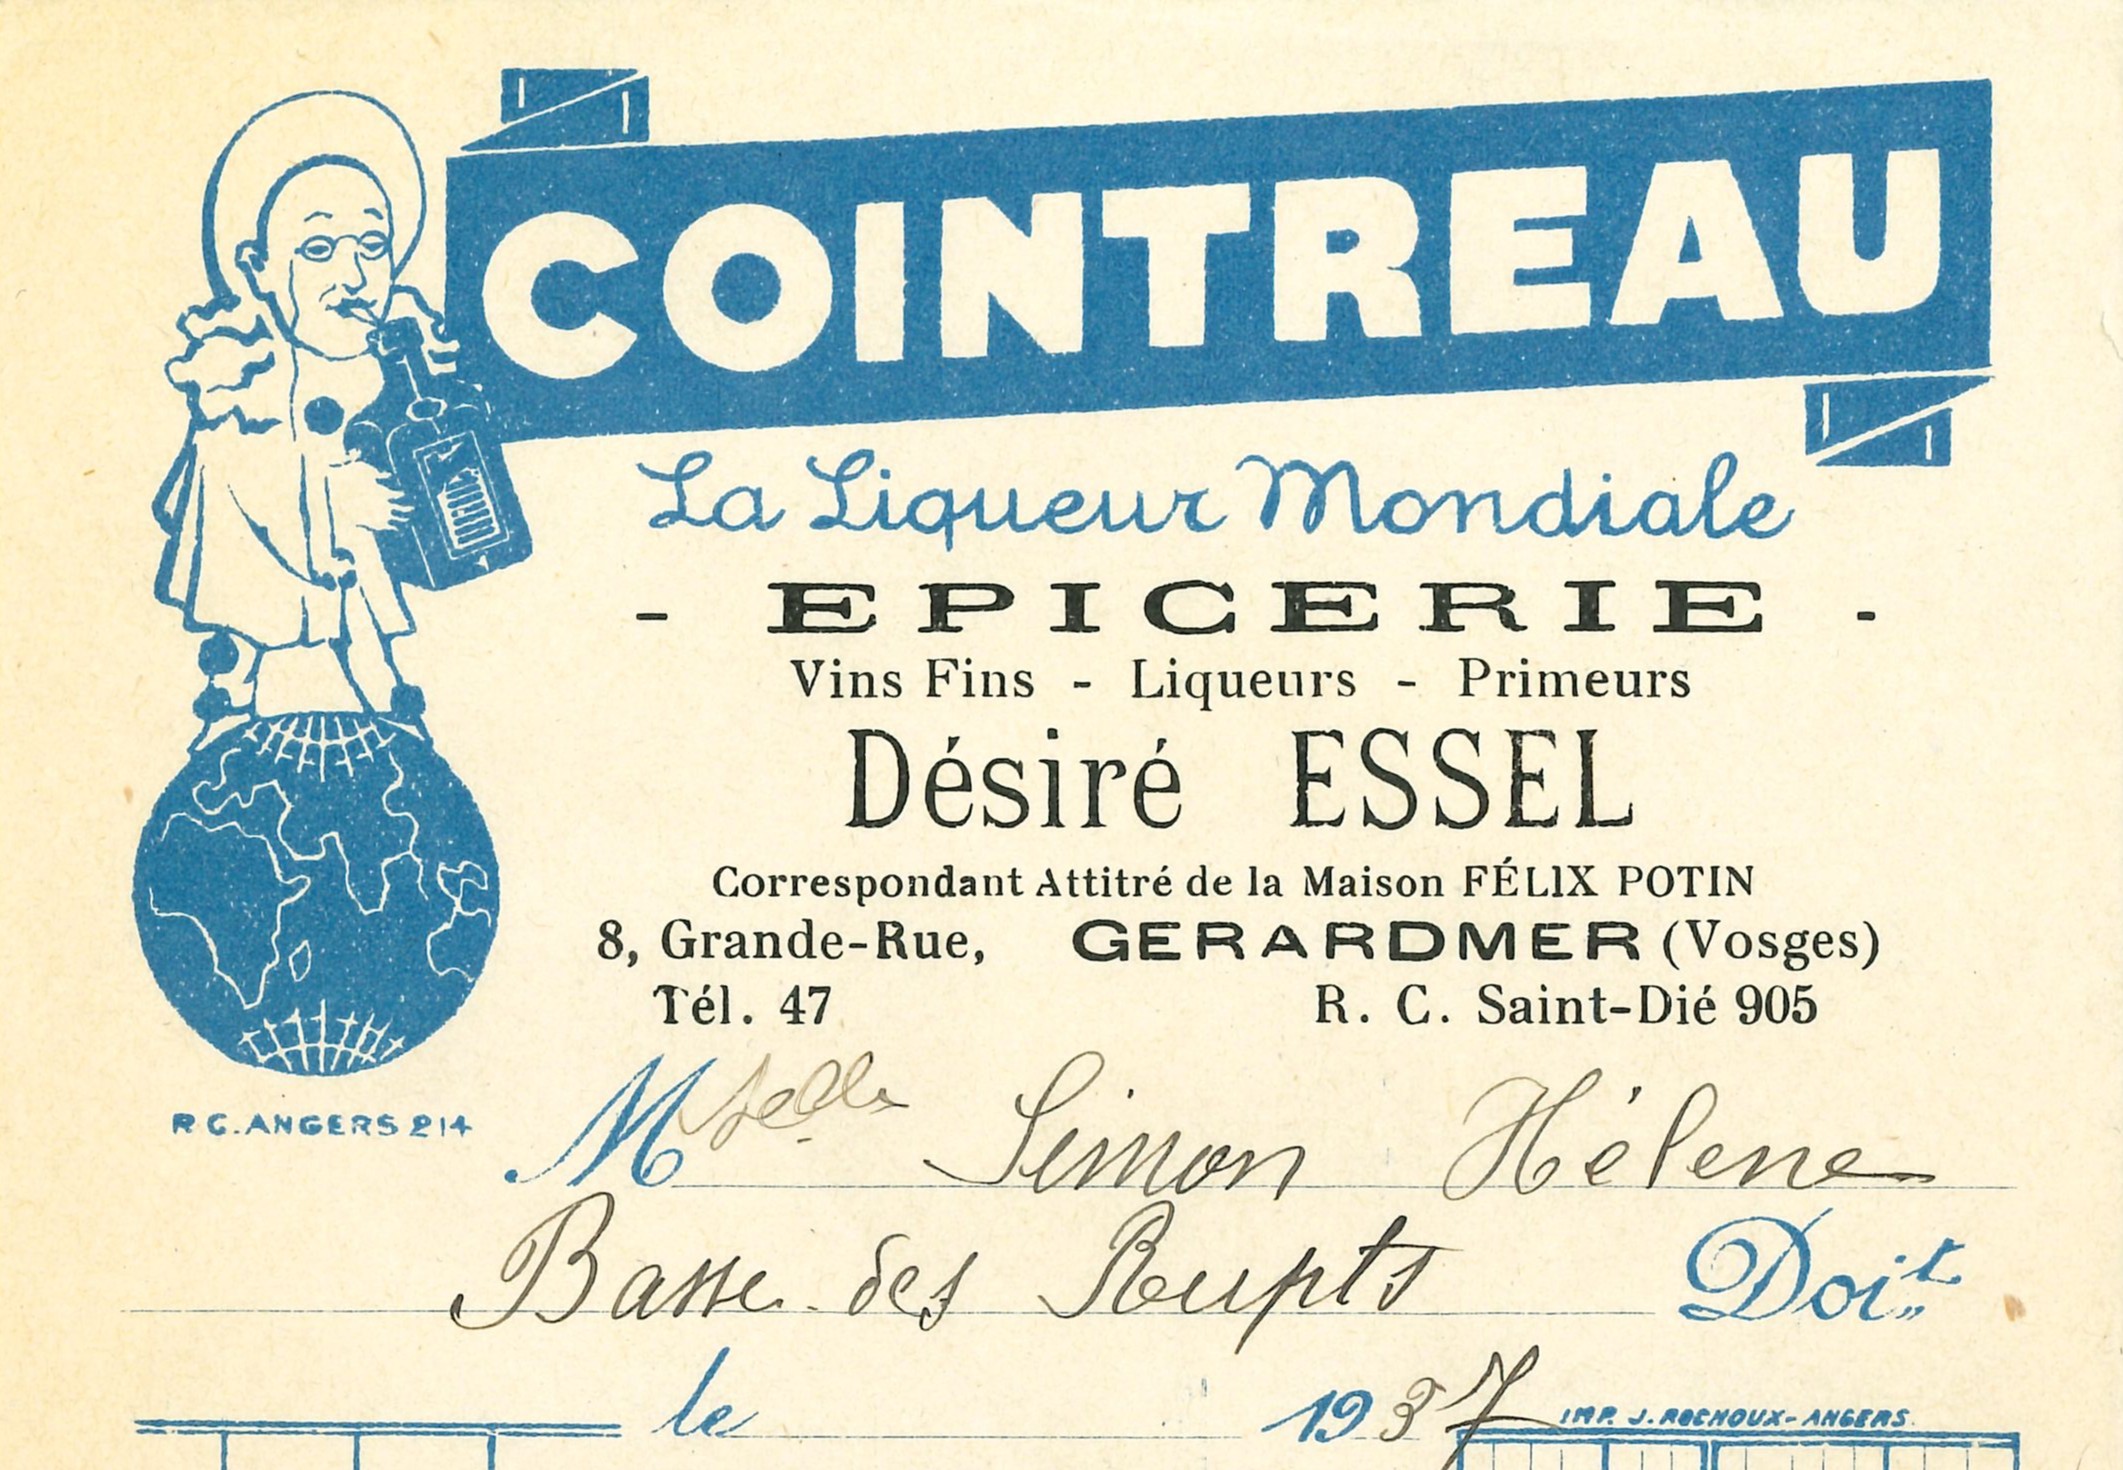 COINTREAU
La Liqueur Mondiale
- EPICERIE -
Vins Fins - Liqueurs - Primeurs
Désiré ESSEL
Correspondant Attitré de la Maison FÉLIX POTIN
8, Grande-Rue, GERARDMER (Vosges)
Tél. 47 R. C. Saint-Dié 905
R.C. ANGERS 214
Mselle Simon Hélene
Basse des Rupts Doit
le 1937
IMP. J. ROCHOUX-ANGERS.